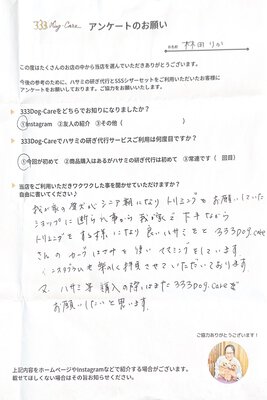 333 Dog-Care アンケートのお願い
お名前 林田 りか
この度はたくさんのお店の中から当店を選んでいただきありがとうございます。
今後の参考のために、ハサミの研ぎ代行とSSSシザーセットをご利用いただいたお客様に
アンケートをお願いしております。ご協力をお願いいたします。
333Dog-Careをどちらでお知りになりましたか？
①Instagram ②友人の紹介 ③その他（ ）
333Dog-Careでハサミの研ぎ代行サービスご利用は何度目ですか？
①今回が初めて ②商品購入はあるがハサミの研ぎ代行は初めて ③常連です（ 回目）
当店をご利用いただきワクワクした事を聞かせていただけますか？
自由に書いてください♪
我が家の愛犬がシニア期になりトリミングをお願いしていた
ショップに断られた事から我が家で下手ながら
トリミングをする様になり良いハサミをと333Dog.Care
さんのカーブハサミを使いトリミングをしています。
インスタグラムも楽しく拝見させていただいております。
又、ハサミ等購入の際はまた333Dog.Careを
お願いしたいと思います。
ご協力ありがとうございます！
上記内容をホームページやInstagramなどで紹介する場合がございます。
載せてほしくない場合はその旨お知らせください。